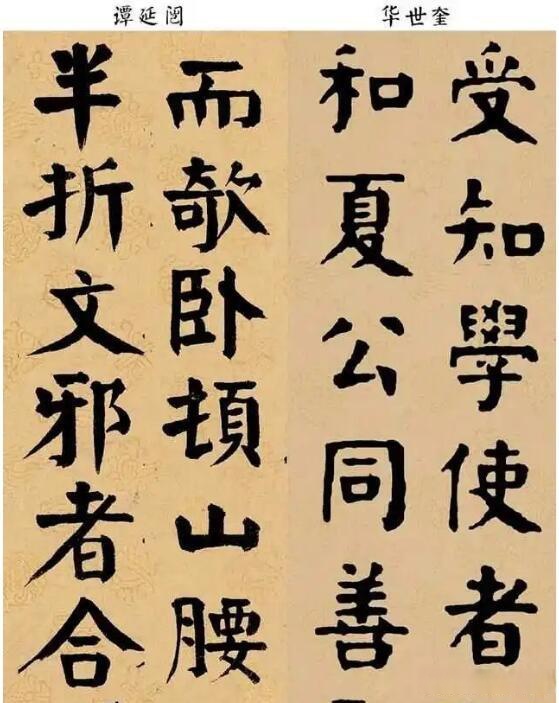 谭延闿
华世奎
受知学使者
和夏公同善
而欹卧顿山腰
半折文邪者合